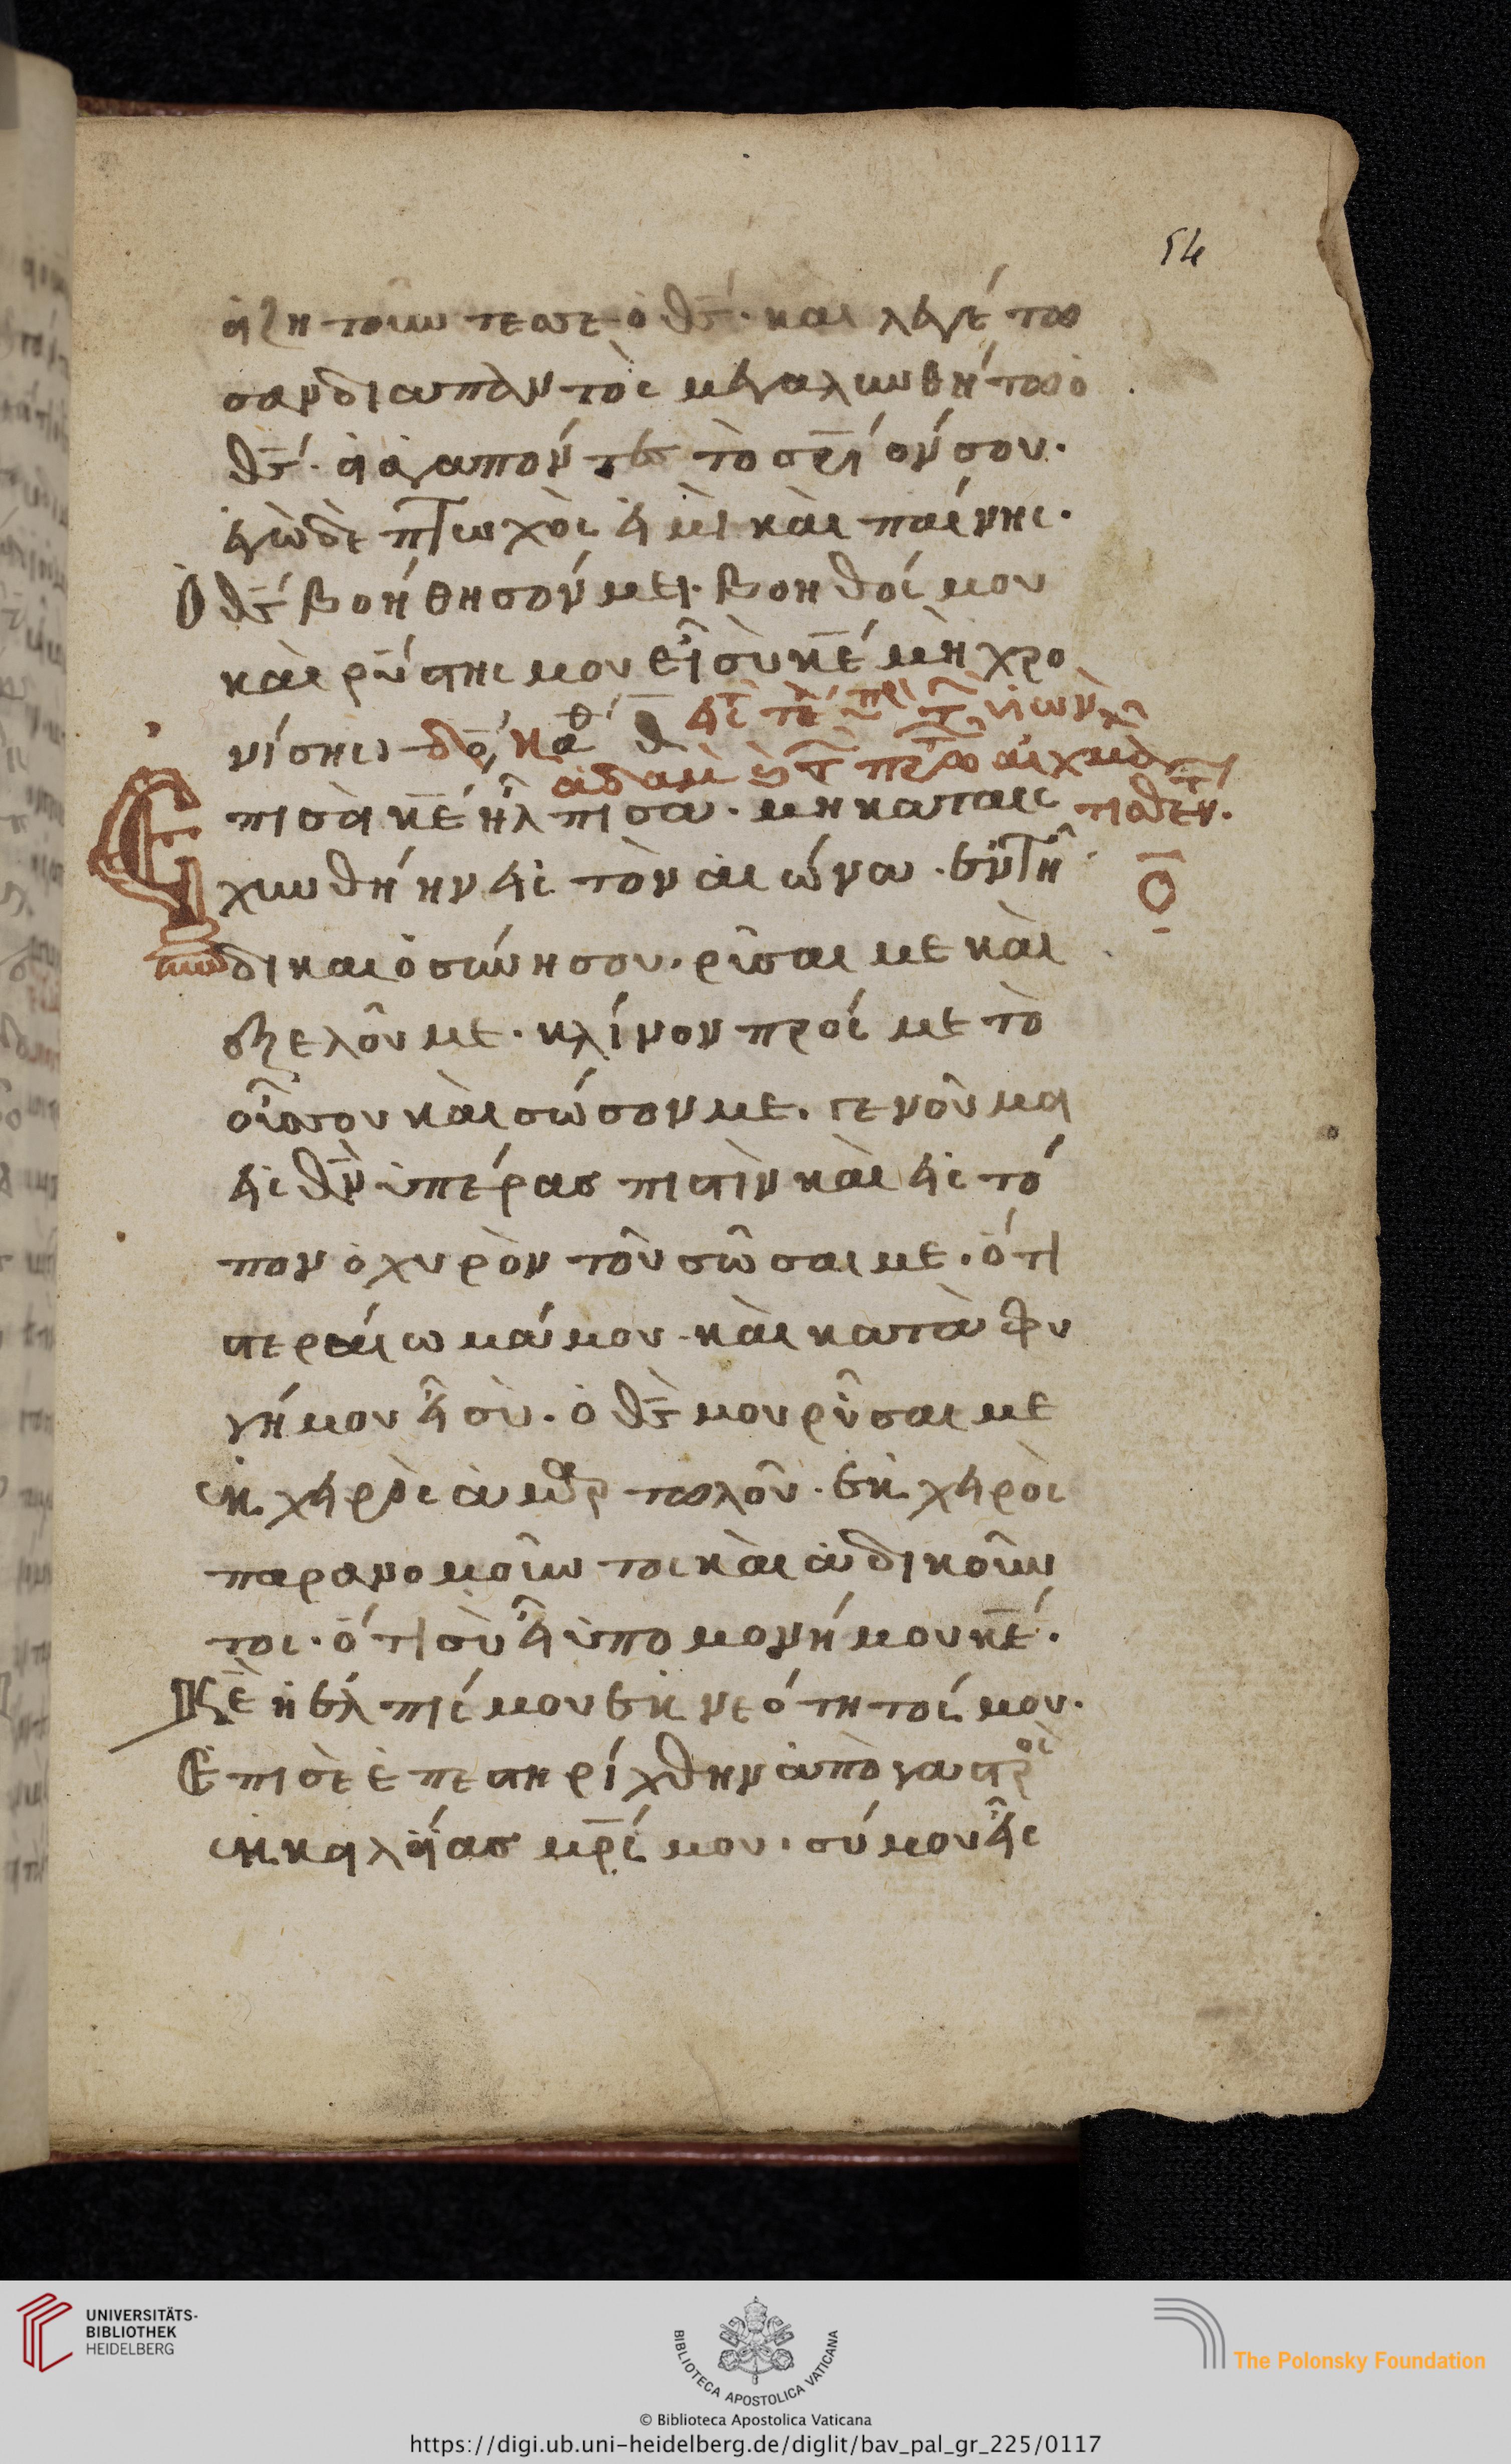 54
οἱ ζητοῦντες σε ὁ θς́. καὶ λεγέτω
σαν διαπαντὸς μεγαλυνθήτω ὁ
θς́. οἱ ἀγαποῦντες τὸ σρίόν σου.
ἐγὼ δὲ πτωχὸς εἰμὶ καὶ παίνης.
Ὁ θς́ βοήθησόν μει. βοηθός μου
καὶ ρύστης μου εἶ σὺ κέ μὴ χρο
νίσης
Ἐπὶ σοὶ κέ ἤλπισα. μὴ καταις
χυνθήην εἰς τὸν αἰώνα. ἐν τῆ
δικαιοσύνη σου. ρῦσαι με καὶ
ἐξελοῦ με. κλίνον πρός με τὸ
οὖς σου καὶ σώσον με. γενοῦ μοι
εἰς θν̀ ὑπερασπιστὴν καὶ εἰς τό
πον ὀχυρὸν τοῦ σῶσαι με. ὅτι
στερέωμά μου. καὶ καταφυ
γή μου εἶ σὺ. ὁ θς̀ μου ρῦσαι με
ἐκ χειρὸς ἁμαρτωλοῦ. ἐκ χειρὸς
παρανομοῦντος καὶ ἀδικοῦν
τος. ὅτι σὺ εἶ ὑπομονή μου κέ.
Κὲ ἡ ἐλπίς μου ἐκ νεότητός μου.
Ἐπὶ σὲ ἐπεστηρίχθην ἀπὸ γαστρὸς
ἐκ κοιλίας μρς μου. σύ μου εἶς
ο
UNIVERSITÄTS-
BIBLIOTHEK
HEIDELBERG
BIBLIOTECA APOSTOLICA VATICANA
The Polonsky Foundation
© Biblioteca Apostolica Vaticana
https://digi.ub.uni-heidelberg.de/diglit/bav_pal_gr_225/0117